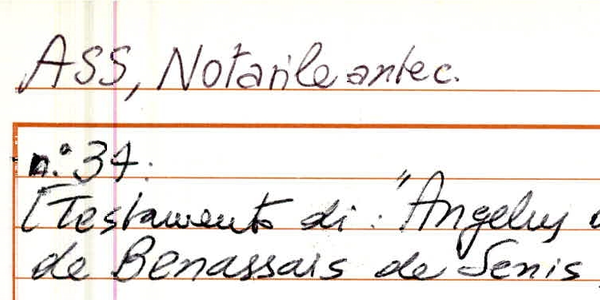 ASS, Notarile antec.
n.° 34.
[Testamento di: "Angelus
de Benassais de Senis